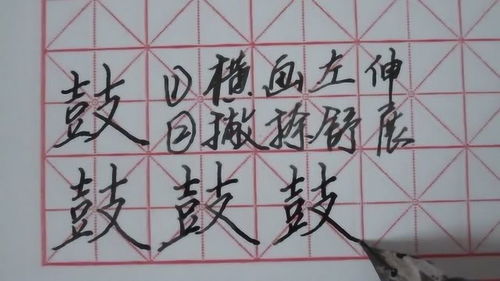 鼓 ①横画左伸
②撇捺舒展
鼓 鼓 鼓